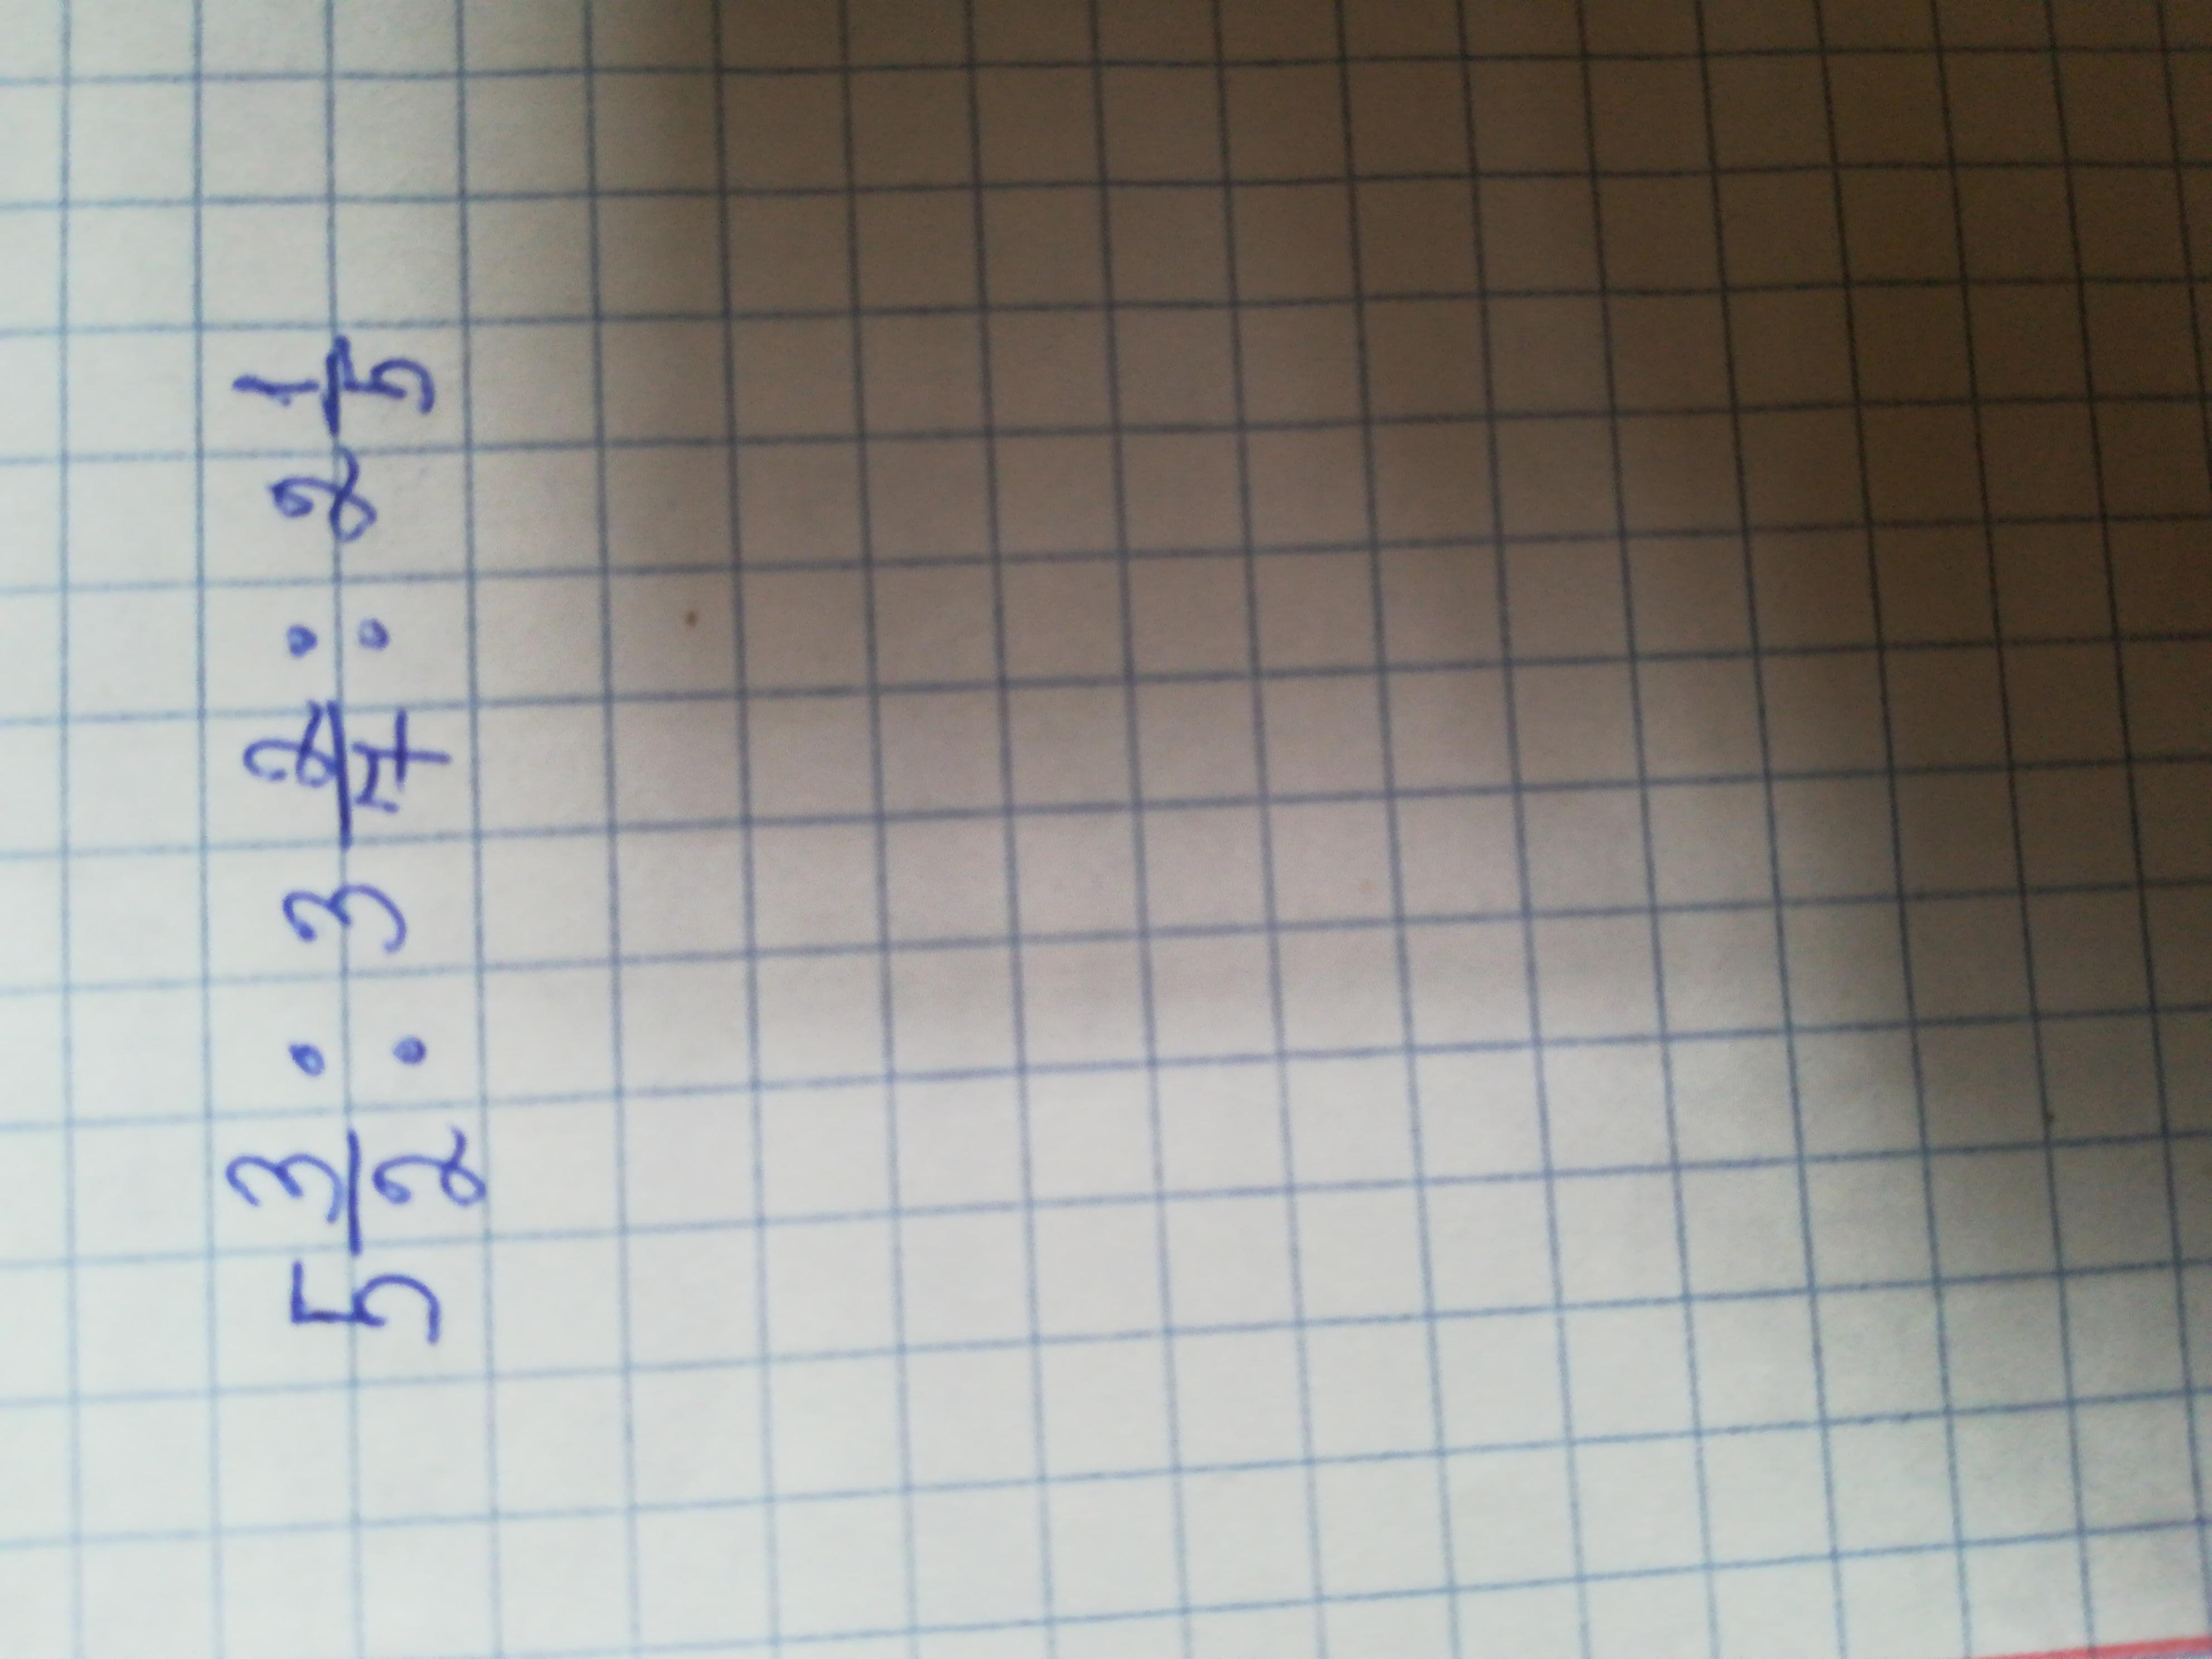 5 3/2 : 3 2/7 : 2 1/5